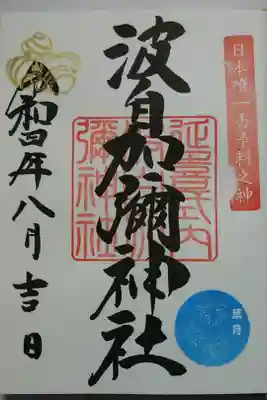 日本唯一香辛料之神
波自加彌神社
延喜式内
波自加
彌神社
葉月
令和四年八月吉日